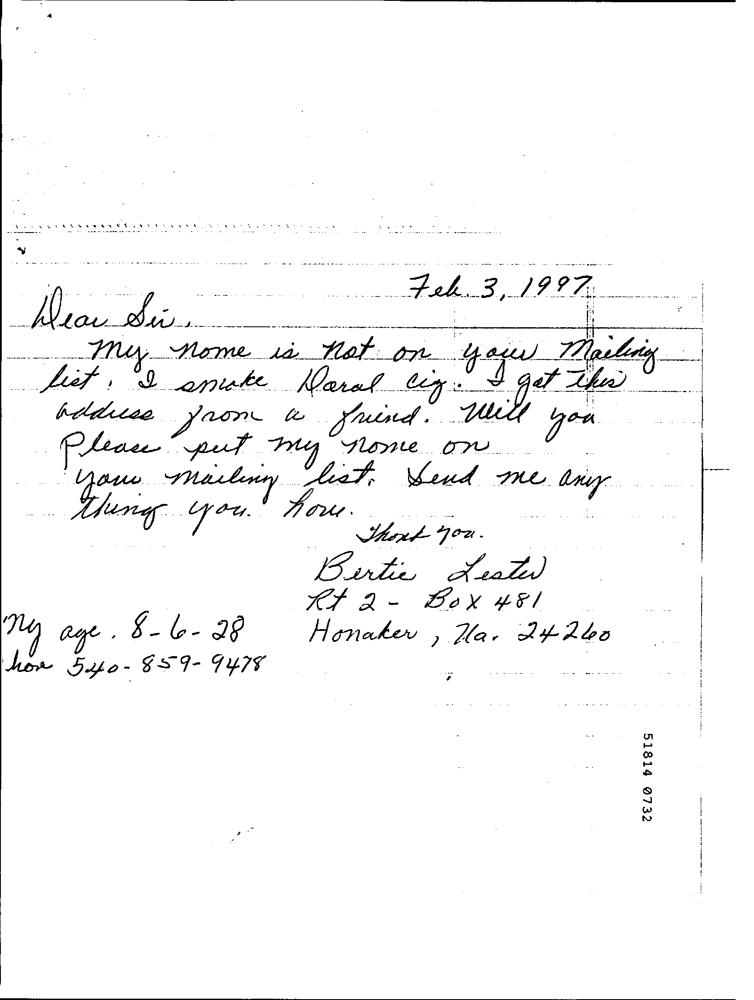 Feb. 3, 1997
Dear Sir,
My nome is not on your Mailing
list. I smoke Doral cig. I got this
address from a friend. Will you
Please put my nome on
your mailing list. Send me any
thing you have.
Thank you.
Bertie Lester
Rt 2 - Box 481
My age. 8-6-28 Honaker, Va. 24260
540-859-9478
51814 0732